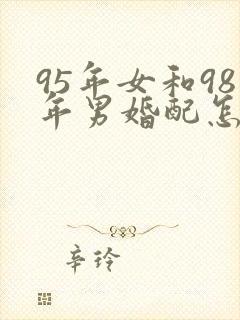 95年女和98
年男婚配怎
辛玲